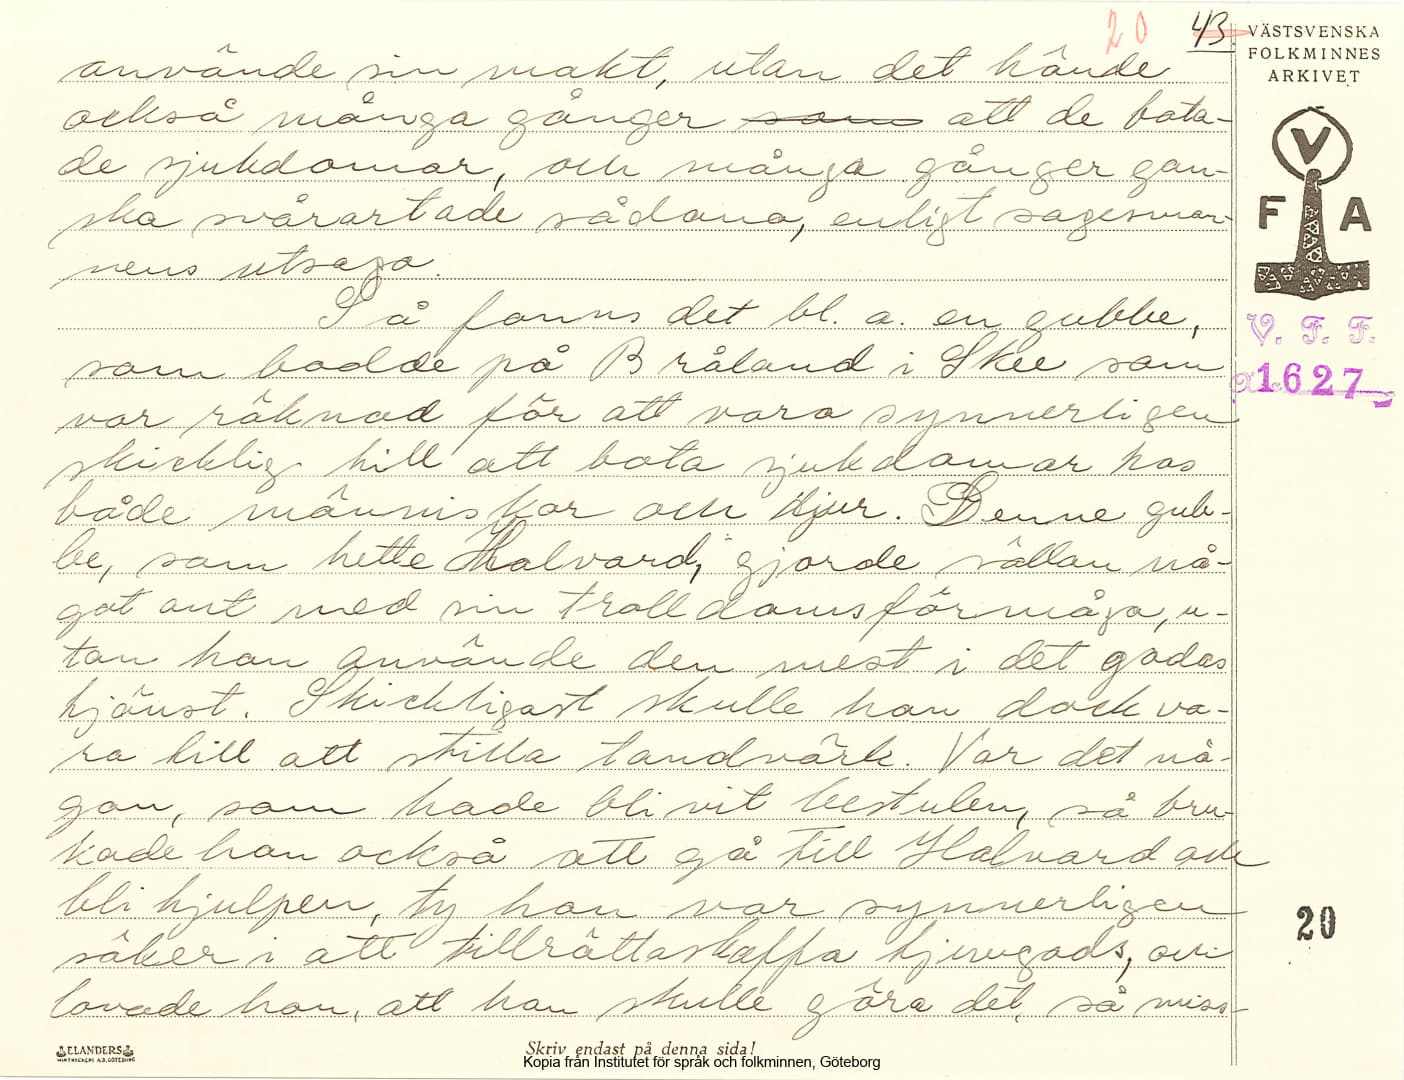 20 43.
VÄSTSVENSKA
FOLKMINNES
ARKIVET
V
F A
V. F. F.
1627
använde sin makt, utan det hände
också många gånger som att de bota-
de sjukdomar, och många gånger gan-
ska svårartade sådana, enligt sagesman-
nens utsaga.
Så fanns det bl. a. en gubbe,
som bodde på Bråland i Skee som
var räknad för att vara synnerligen
skicklig till att bota sjukdomar hos
både människor och djur. Denne gub-
be, som hette Halvard, gjorde sällan nå-
got ont med sin trolldomsförmåga, u-
tan han använde den mest i det godas
tjänst. Skickligast skulle han dock va-
ra till att stilla tandvärk. Var det nå-
gon, som hade blivit bestulen, så bru-
kade han också att gå till Halvard och
bli hjulpen, ty han var synnerligen
säker i att tillrättaskaffa tjuvgods, och
lovade han, att han skulle göra det, så miss-
20
ELANDERS
Skriv endast på denna sida!
Kopia från Institutet för språk och folkminnen, Göteborg